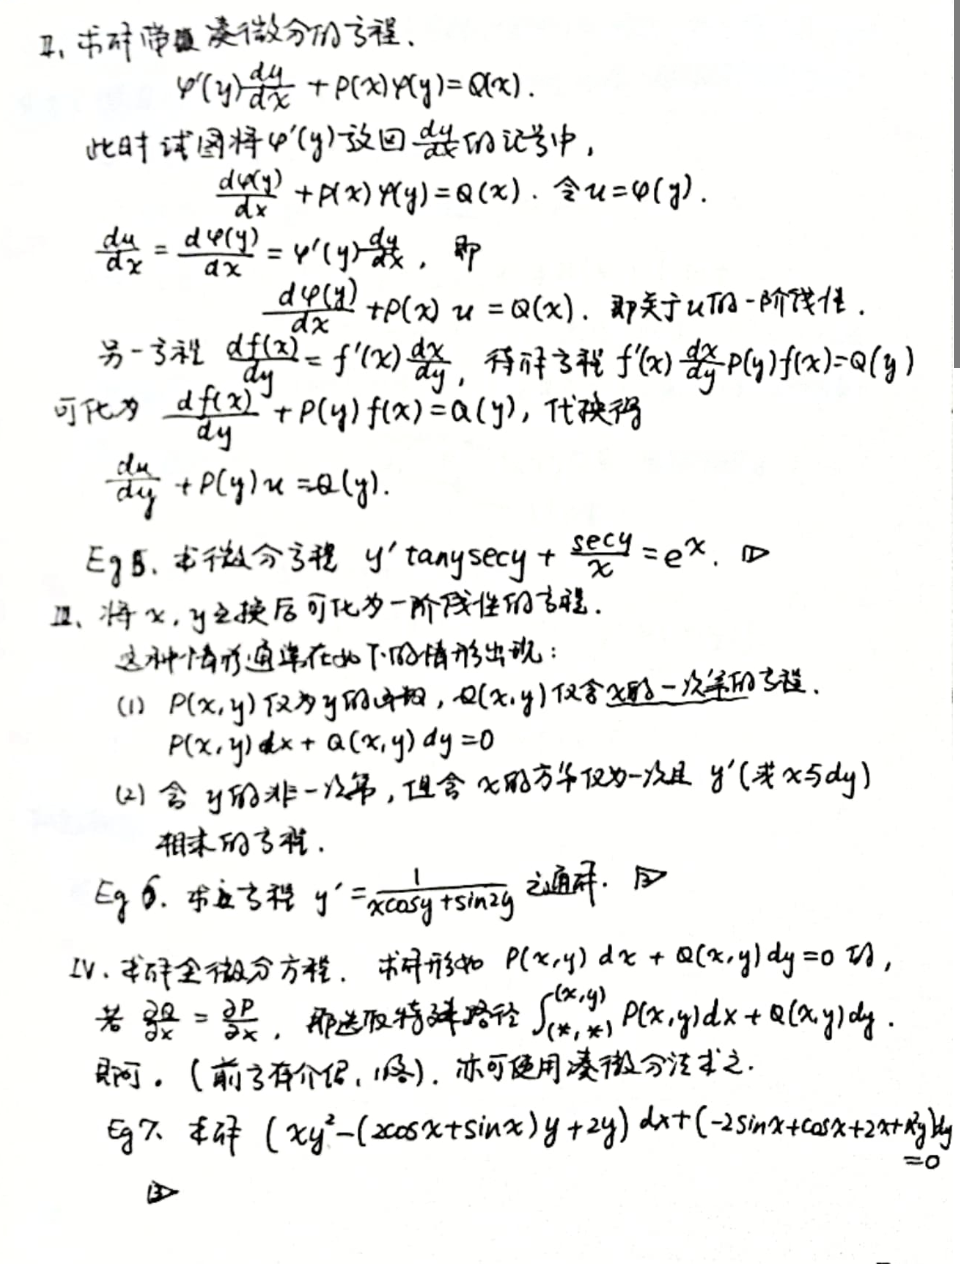 II、求解带凑微分的方程.
φ'(y)dy/dx + P(x)φ(y)=Q(x).
此时试图将φ'(y)放回dy/dx的记号中,
dφ(y)/dx + P(x)φ(y)=Q(x). 令u=φ(y).
du/dx = dφ(y)/dx = φ'(y)dy/dx, 即
dφ(y)/dx +P(x) u = Q(x). 即关于u的一阶线性.
另一方程 df(x)/dy = f'(x) dx/dy, 待解方程 f'(x) dx/dy P(y)f(x)=Q(y)
可化为 df(x)/dy + P(y) f(x) = Q(y), 代换得
du/dy + P(y) u = Q(y).
Eg 5. 求微分方程 y' tany secy + secy/x = e^x. ▷
III、将 x, y 互换后可化为一阶线性的方程.
这种情形通常在如下的情形出现:
(1) P(x,y)仅为y的函数, Q(x,y)仅含x的一次幂的方程.
P(x,y)dx + Q(x,y)dy=0
(2) 含 y的非一次幂, 但含 x的方幂仅为一次且 y'(或x与dy)
相乘的方程.
Eg 6. 求方程 y' = 1/(xcosy+sin2y) 之通解. ▷
IV. 求解全微分方程. 求解形如 P(x,y) dx + Q(x,y) dy=0 的,
若 ∂Q/∂x = ∂P/∂x, 那选取特殊路径 ∫_(*,*)^(x,y) P(x,y)dx + Q(x,y)dy.
即可. (前方有介绍, 略). 亦可使用凑微分法求之.
Eg 7. 求解 (xy²-(2cosx+sinx)y+2y) dx+(-2sinx+cosx+2x+x²y)dy
=0
▷